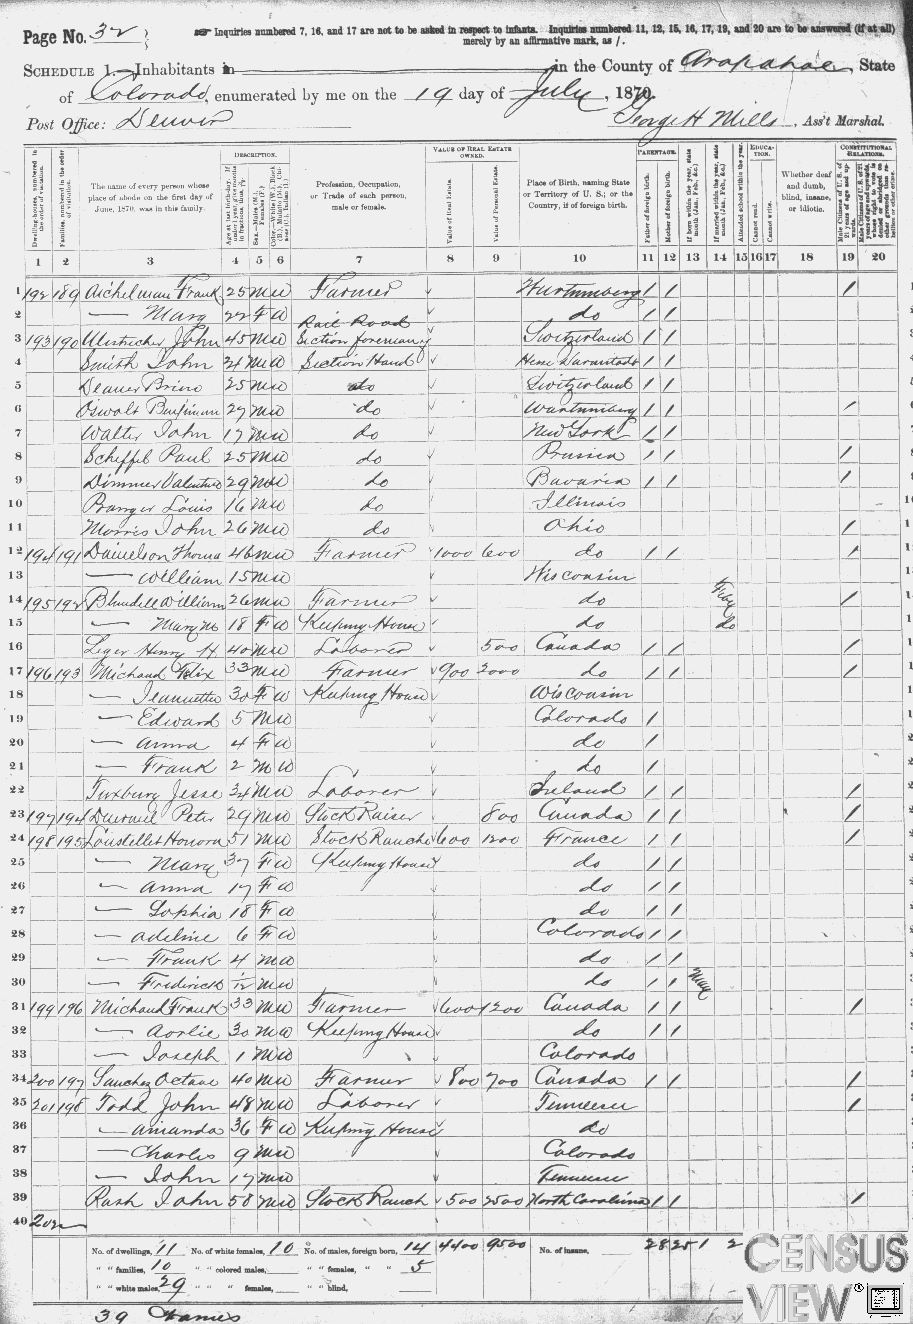 Page No. 32
Inquiries numbered 7, 16, and 17 are not to be asked in respect to infants. Inquiries numbered 11, 12, 15, 16, 17, 19, and 20 are to be answered (if at all) merely by an affirmative mark, as /.
SCHEDULE 1.—Inhabitants in in the County of Arapahoe State
of Colorado, enumerated by me on the 19 day of July, 1870.
Post Office: Denver George H Mills, Ass't Marshal.
Dwelling-houses, numbered in the order of visitation.
Families, numbered in the order of visitation.
The name of every person whose place of abode on the first day of June, 1870, was in this family.
DESCRIPTION.
Profession, Occupation, or Trade of each person, male or female.
VALUE OF REAL ESTATE OWNED.
Value of Real Estate.
Value of Personal Estate.
Place of Birth, naming State or Territory of U. S.; or the Country, if of foreign birth.
PARENTAGE.
Father of foreign birth.
Mother of foreign birth.
Attended school within the year.
EDUCATION.
Cannot read.
Cannot write.
Whether deaf and dumb, blind, insane, or idiotic.
CONSTITUTIONAL RELATIONS.
1 2 3 4 5 6 7 8 9 10 11 12 13 14 15 16 17 18 19 20
1 192 189 Aichelman Frank 25 M W Farmer Wurtumberg / / /
2 — Mary 22 F W do / /
3 193 190 John 45 M W Rail Road Section foreman Switzerland / /
4 Smith John 21 M W Section Hand Hesse Darmstadt / /
5 25 M W do Switzerland / /
6 Oswalt Benjiman 27 M W do Wurtumberg / / /
7 Walter John 17 M W do New York / /
8 Scheffel Paul 25 M W do Prussia / / /
9 Dimmer Valentine 29 M W do Bavaria / / /
10 Louis 16 M W do Illinois
11 Morris John 26 M W do Ohio /
12 194 191 Danielson Thomas 46 M W Farmer 1000 600 do / / /
13 — William 15 M W Wisconsin
14 195 192 Blundell William 26 M W Farmer do Feby /
15 — Mary M 18 F W Keeping House do do
16 Leger Henry H 40 M W Laborer 500 Canada / / /
17 196 193 Michaud Felix 33 M W Farmer 900 2000 do / / /
18 — Jeannette 30 F W Keeping House Wisconsin
19 — Edward 5 M W Colorado /
20 — Anna 4 F W do /
21 — Frank 2 M W do /
22 Tuxbury Jesse 34 M W Laborer Ireland / / /
23 197 194 Peter 29 M W Stock Raiser 800 Canada / / /
24 198 195 Honora 51 M W Stock Ranch 1600 1200 France / / /
25 — Mary 37 F W Keeping House do / /
26 — Anna 17 F W do / /
27 — Sophia 18 F W do / /
28 — Adeline 6 F W Colorado / /
29 — Frank 4 M W do / /
30 — Fredirick 1/12 M W do / / May
31 199 196 Michaud Frank 33 M W Farmer 600 1200 Canada / / /
32 — Aorlie 30 M W Keeping House do / /
33 — Joseph 1 M W Colorado
34 200 197 Sanchez Octave 40 M W Farmer 800 700 Canada / / /
35 201 198 Todd John 48 M W Laborer Tennessee /
36 — Amanda 36 F W Keeping House do
37 — Charles 9 M W Colorado
38 — John 17 M W Tennessee
39 Rush John 58 M W Stock Ranch 500 2500 North Carolina / / /
40 202
No. of dwellings, 11 No. of white females, 10 No. of males, foreign born, 14 4400 9500 No. of insane, 28 25 1 2
" " families, 10 " " colored males, " " females, " " 5
" " white males, 29 " " females, " " blind,
39 Names
CENSUS
VIEW®